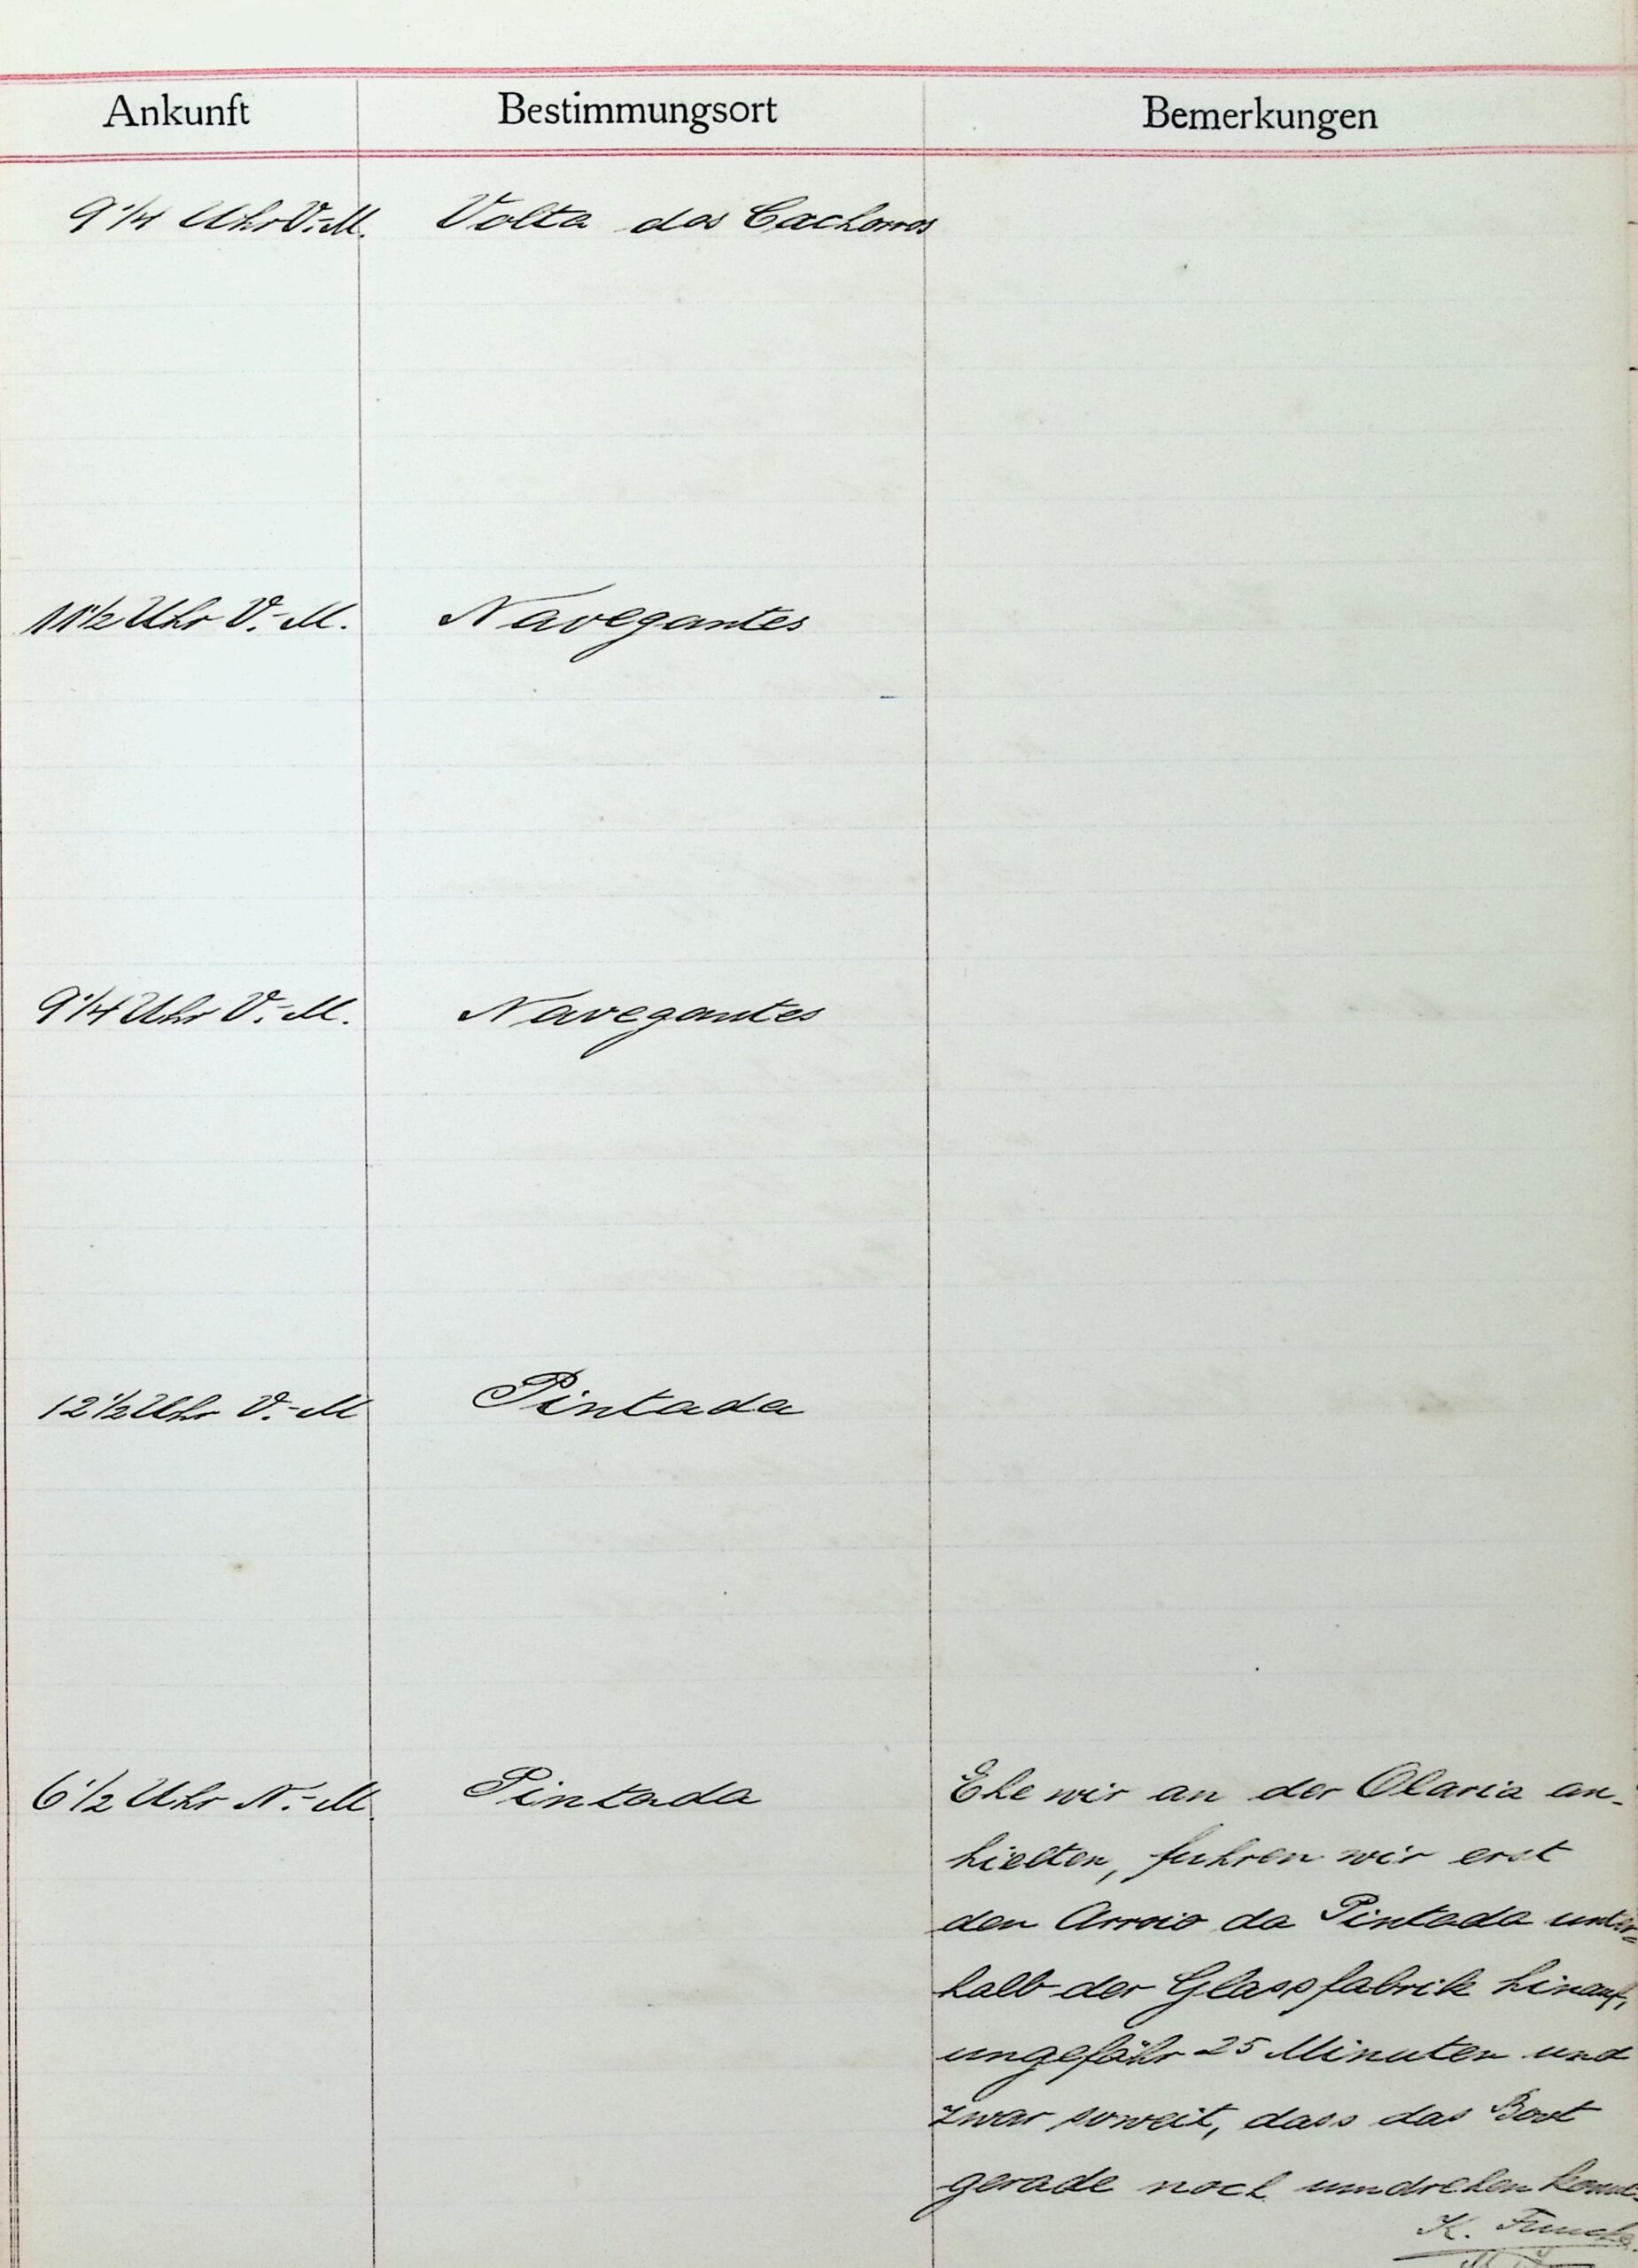 Ankunft Bestimmungsort Bemerkungen
9 1/4 Uhr V.-M. Volta dos Cachorros
11 1/2 Uhr V.-M. Navegantes
9 1/4 Uhr V.-M. Navegantes
12 1/2 Uhr V.-M Pintada
6 1/2 Uhr N.-M. Pintada Ehe wir an der Olaria an-
hielten, fuhren wir erst
den Arroio da Pintada unter=
halb der Glassfabrik hinauf,
ungefähr 25 Minuten und
zwar soweit, dass das Boot
gerade noch umdrehen
K.